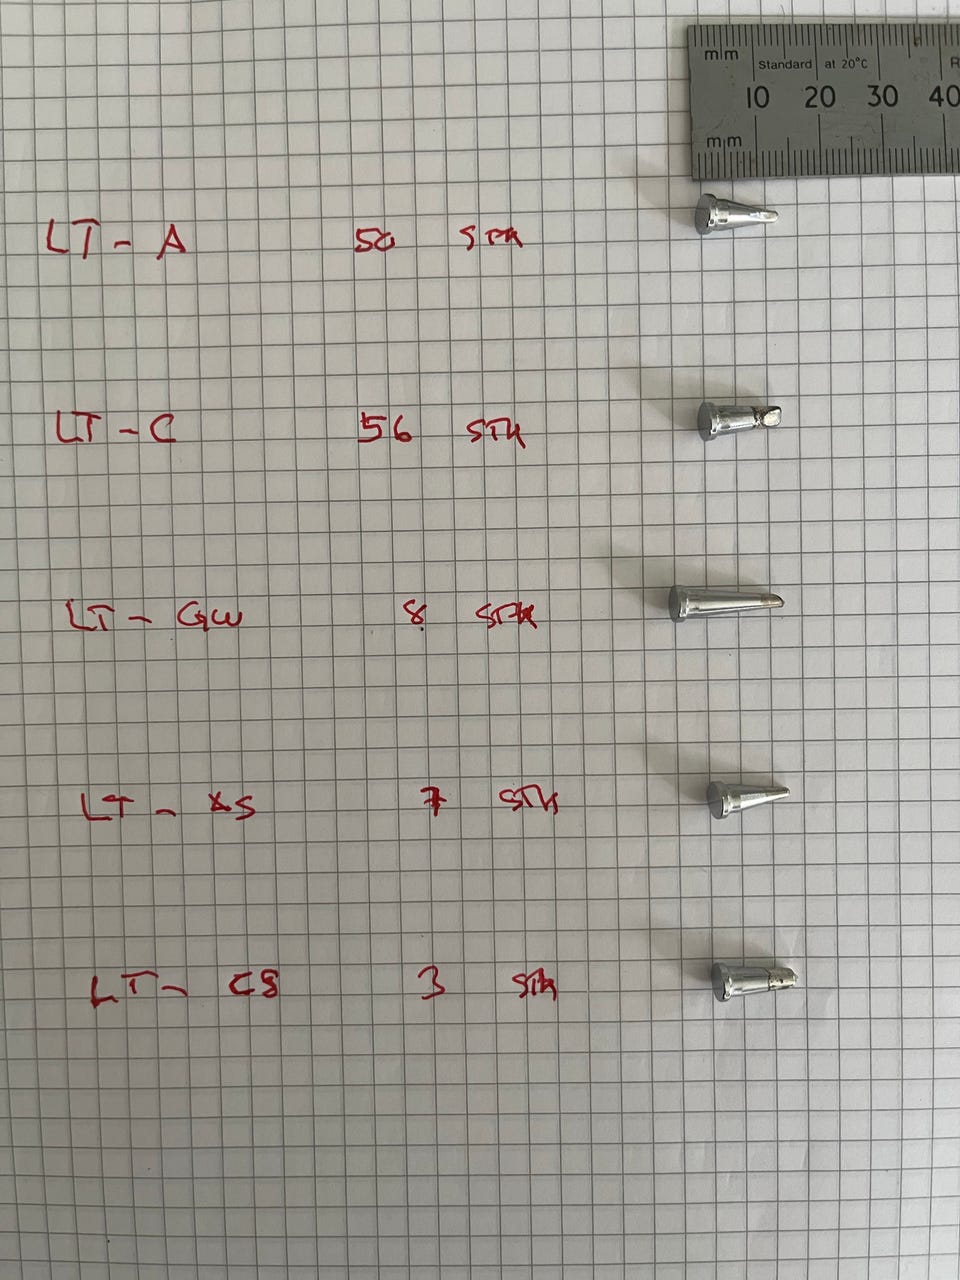 mm
Standard at 20°C R
10 20 30 40
mm
LT - A 50 STK
LT - C 56 STK
LT - GW 8 STK
LT - XS 7 STK
LT - CS 3 Stk